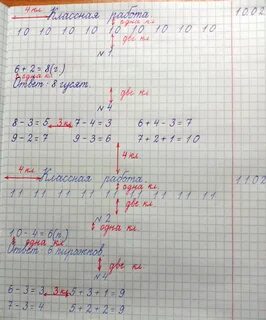 10.02
4 кл. Классная работа.
одна кл.
10 10 10 10 10 10 10 10 10
две кл.
№1
6 + 2 = 8 (г.)
одна кл.
Ответ: 8 гусят.
две кл.
№4
8 - 3 = 5 3 кл 7 - 4 = 3 6 + 4 - 3 = 7
9 - 2 = 7 9 - 3 = 6 7 + 2 + 1 = 10
4 кл.
11.02
4 кл. Классная работа.
одна кл.
11 11 11 11 11 11 11 11 11
две кл.
№2
одна кл.
10 - 4 = 6 (п.)
одна кл.
Ответ: 6 пирожков.
две кл.
№4
6 - 3 = 3 3 кл 5 + 3 + 1 = 9
7 - 3 = 4 5 + 2 + 2 = 9